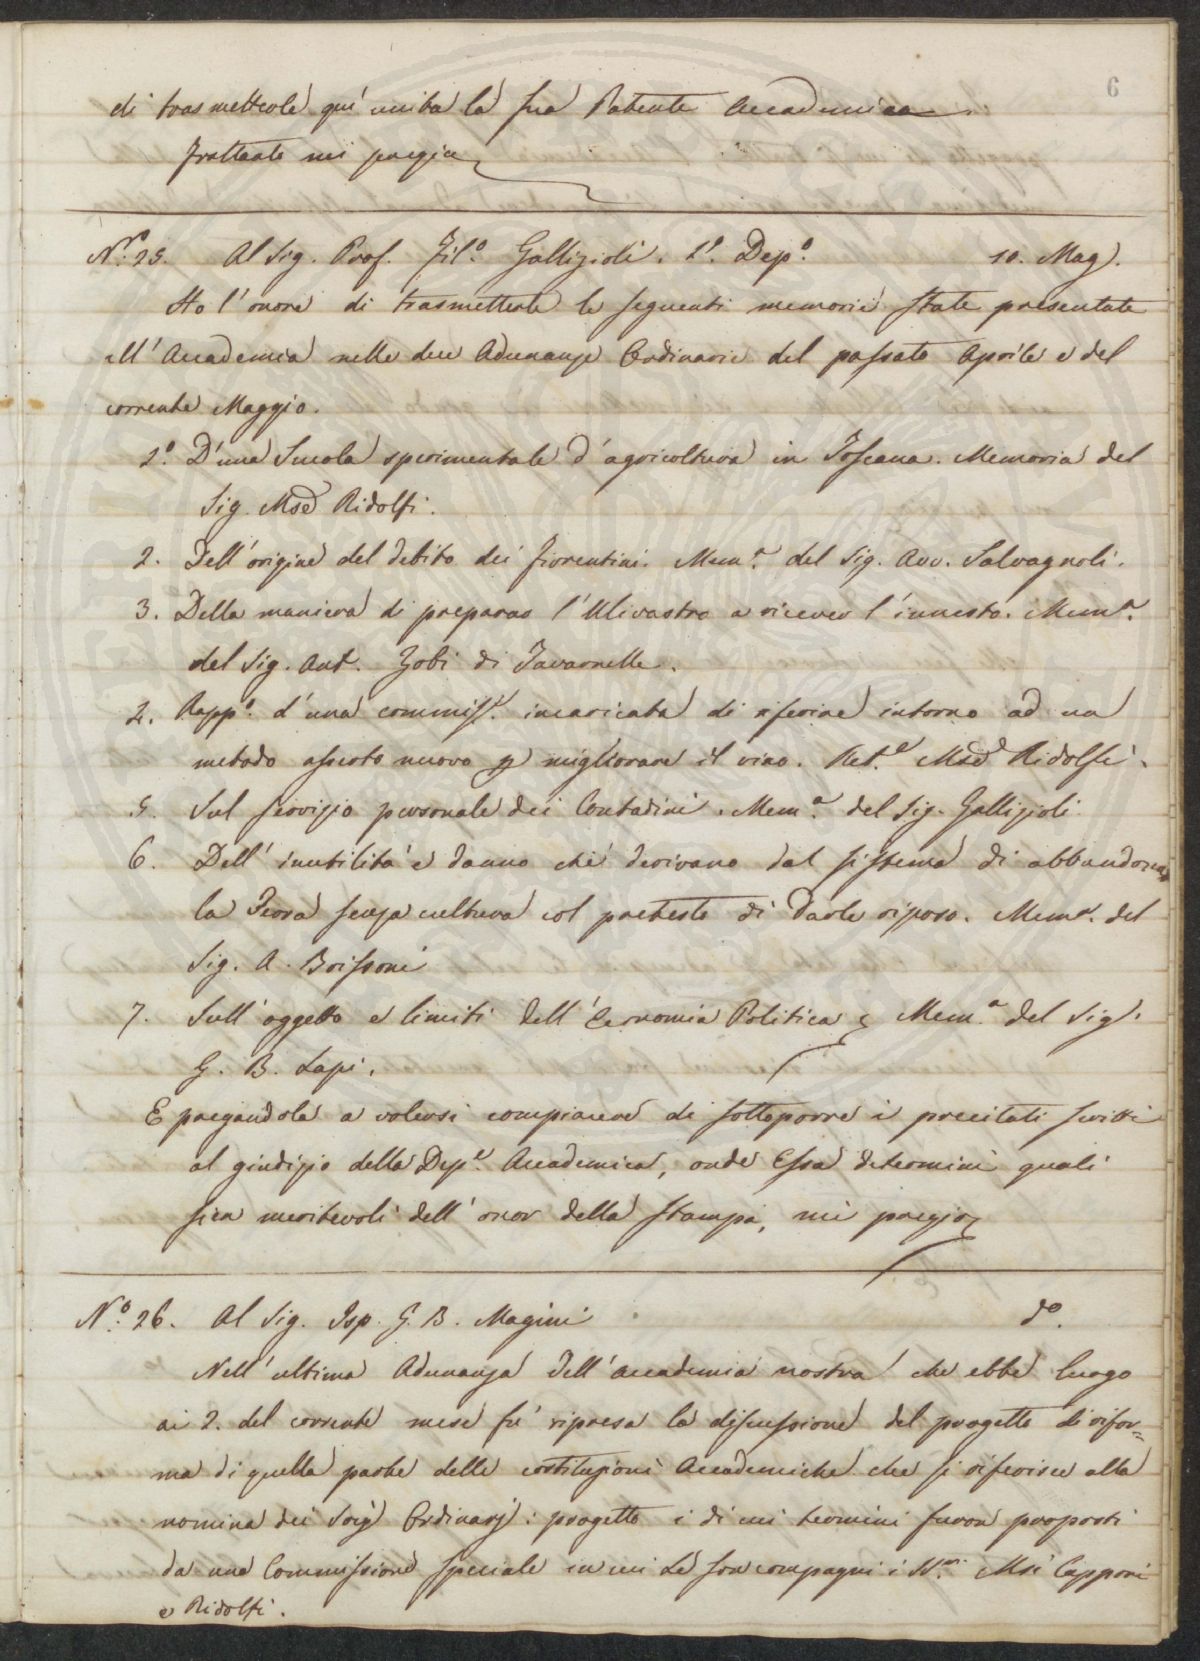 6
di trasmetterle quì unita la sua Patente Accademica.
Frattanto mi pregio
N.º 25. Al Sig. Prof. Fil.º Gallizioli. 1º. Dep.º 10. Mag.
Ho l'onore di trasmetterle le seguenti memorie state presentate
all'Accademia nelle due Adunanze Ordinarie del passato Aprile e del
corrente Maggio.
1º. D'una Scuola sperimentale d'agricoltura in Toscana. Memoria del
Sig. Mse Ridolfi.
2. Dell'origine del debito dei fiorentini. Mem.ª del Sig. Avv. Salvagnoli.
3. Della maniera di preparar l'Ulivastro a ricever l'innesto. Mem.ª
del Sig. Ant. Zobi di Tavarnelle.
4. Rapp.º d'una commiss.e incaricata di riferire intorno ad un
metodo asserto nuovo p migliorare il vino. Rel.e Mse Ridolfi.
5. Sul servizio personale dei Contadini. Mem.ª del Sig. Gallizioli.
6. Dell'inutilità e danno che derivano dal sistema di abbandonar
la Terra senza cultura col pretesto di darle riposo. Mem.ª del
Sig. A. Boissoni
7. Sull'oggetto e limiti dell'Economia Politica Mem.ª del Sig.
G. B. Lapi.
E pregandola a volersi compiacere di sottoporre i precitati scritti
al giudizio della Dep.e Accademica, onde Essa determini quali
sien meritevoli dell'onor della stampa, mi pregio
N.º 26. Al Sig. Isp. G. B. Magini dº.
Nell'ultima Adunanza dell'accademia nostra che ebbe luogo
ai 2. del corrente mese fù ripresa la discussione del progetto di rifor=
ma di quella parte delle costituzioni Accademiche che si riferisce alla
nomina dei Socj Ordinarj: progetto i di cui termini furon proposti
da una Commissione speciale in cui Le son compagni i SS.ri Msi Capponi
e Ridolfi.